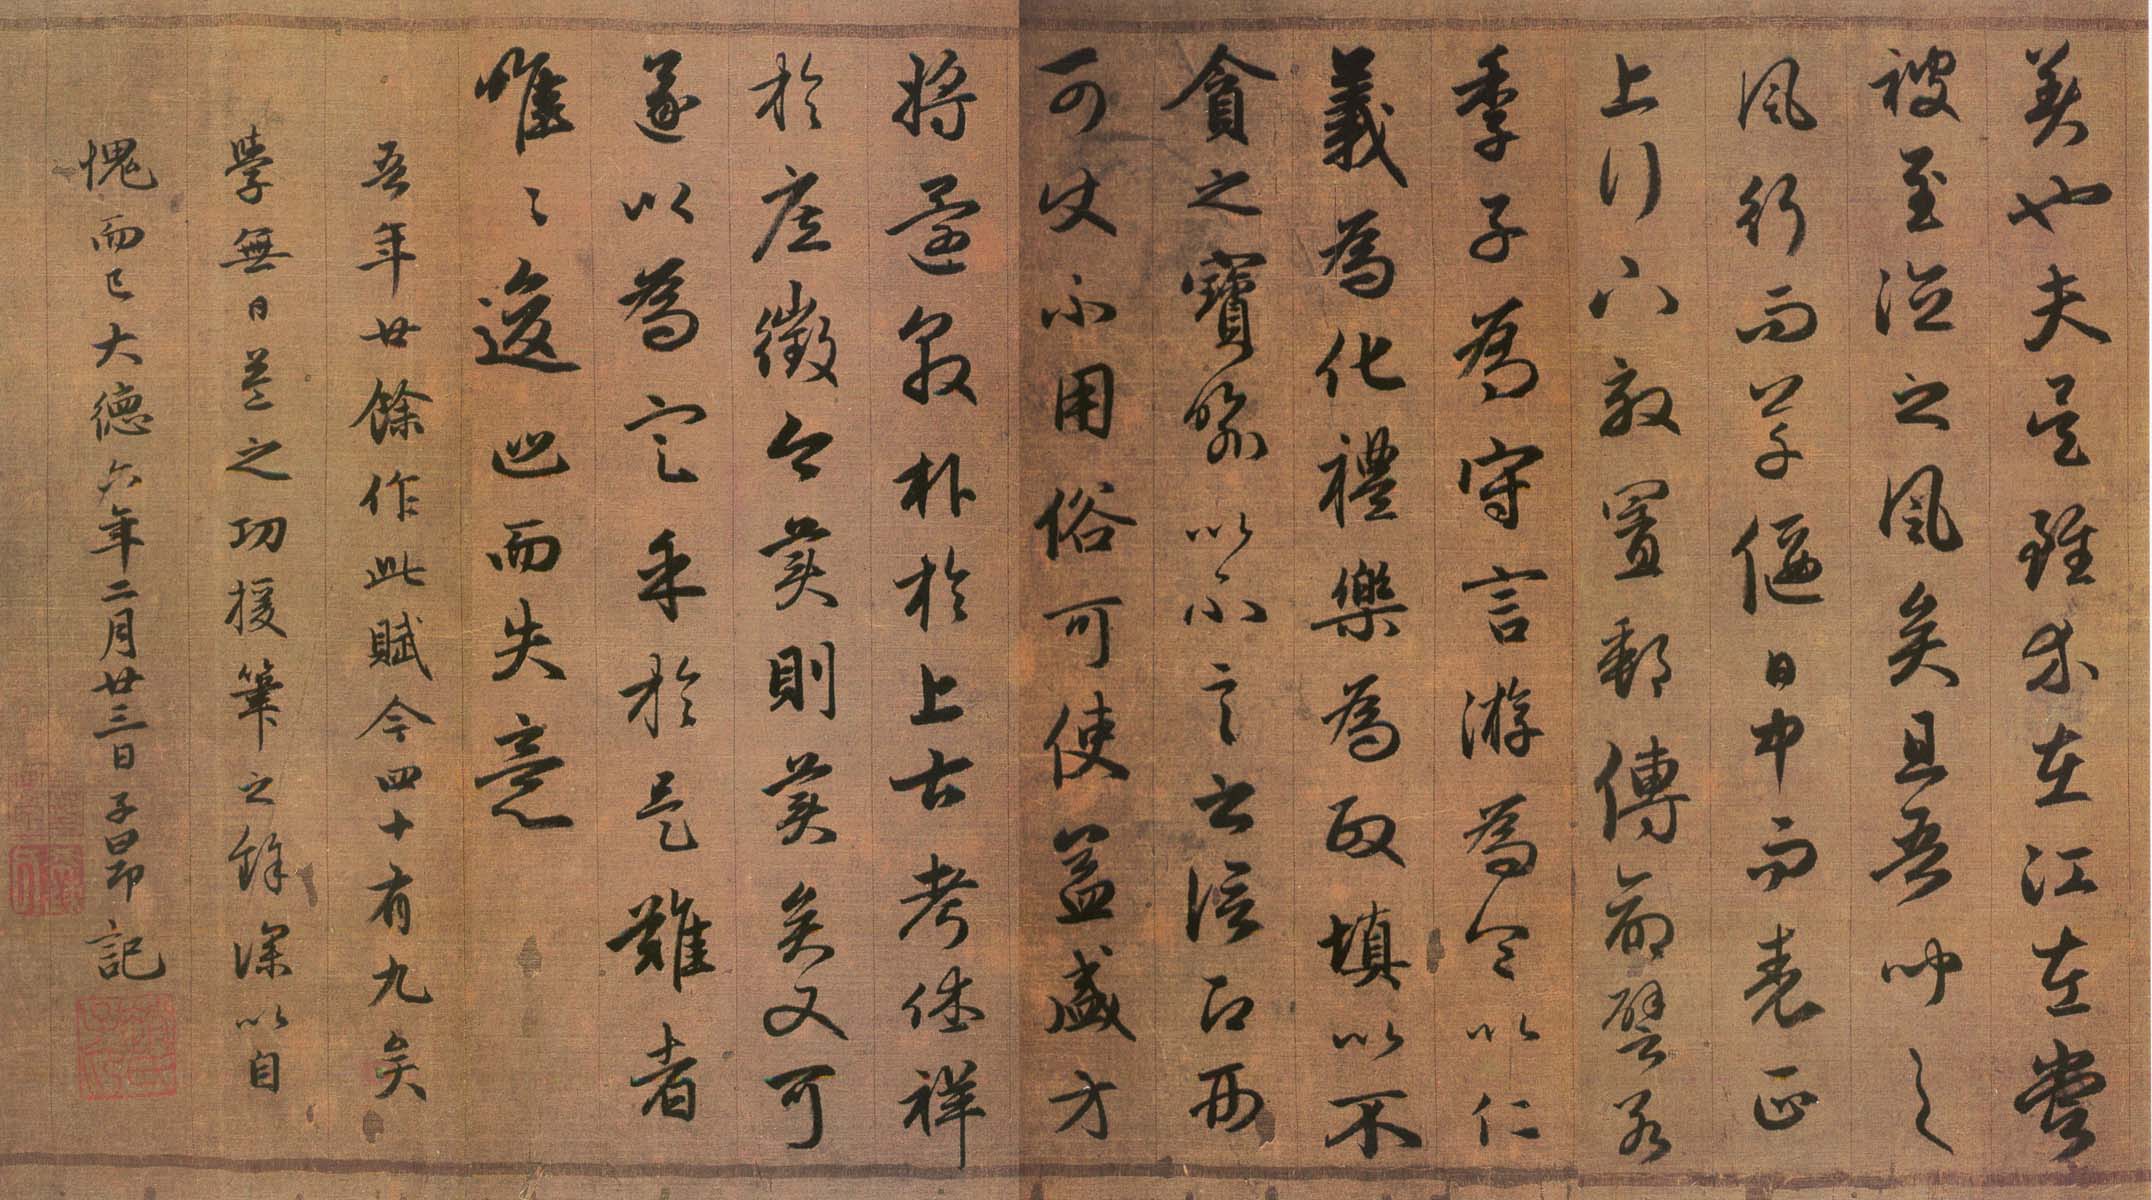 美也夫是雖在江左嘗
被至治之風矣且吾聞之
風行而草偃日中而表正
上行下效置郵傳命譬若
季子為守言游為令以仁
義為化禮樂為政填以不
貪之寶喻以不言之信即
可使不用俗可使益盛方
將還敦朴於上古考休祥
於庶徵今美則美矣又可
遂以為定乎於是難者
唯〻逡巡而失意
吾年廿餘作此賦今四十有九矣
學無日益之功援筆之餘深以自
愧而已大德六年二月廿三日子昂記